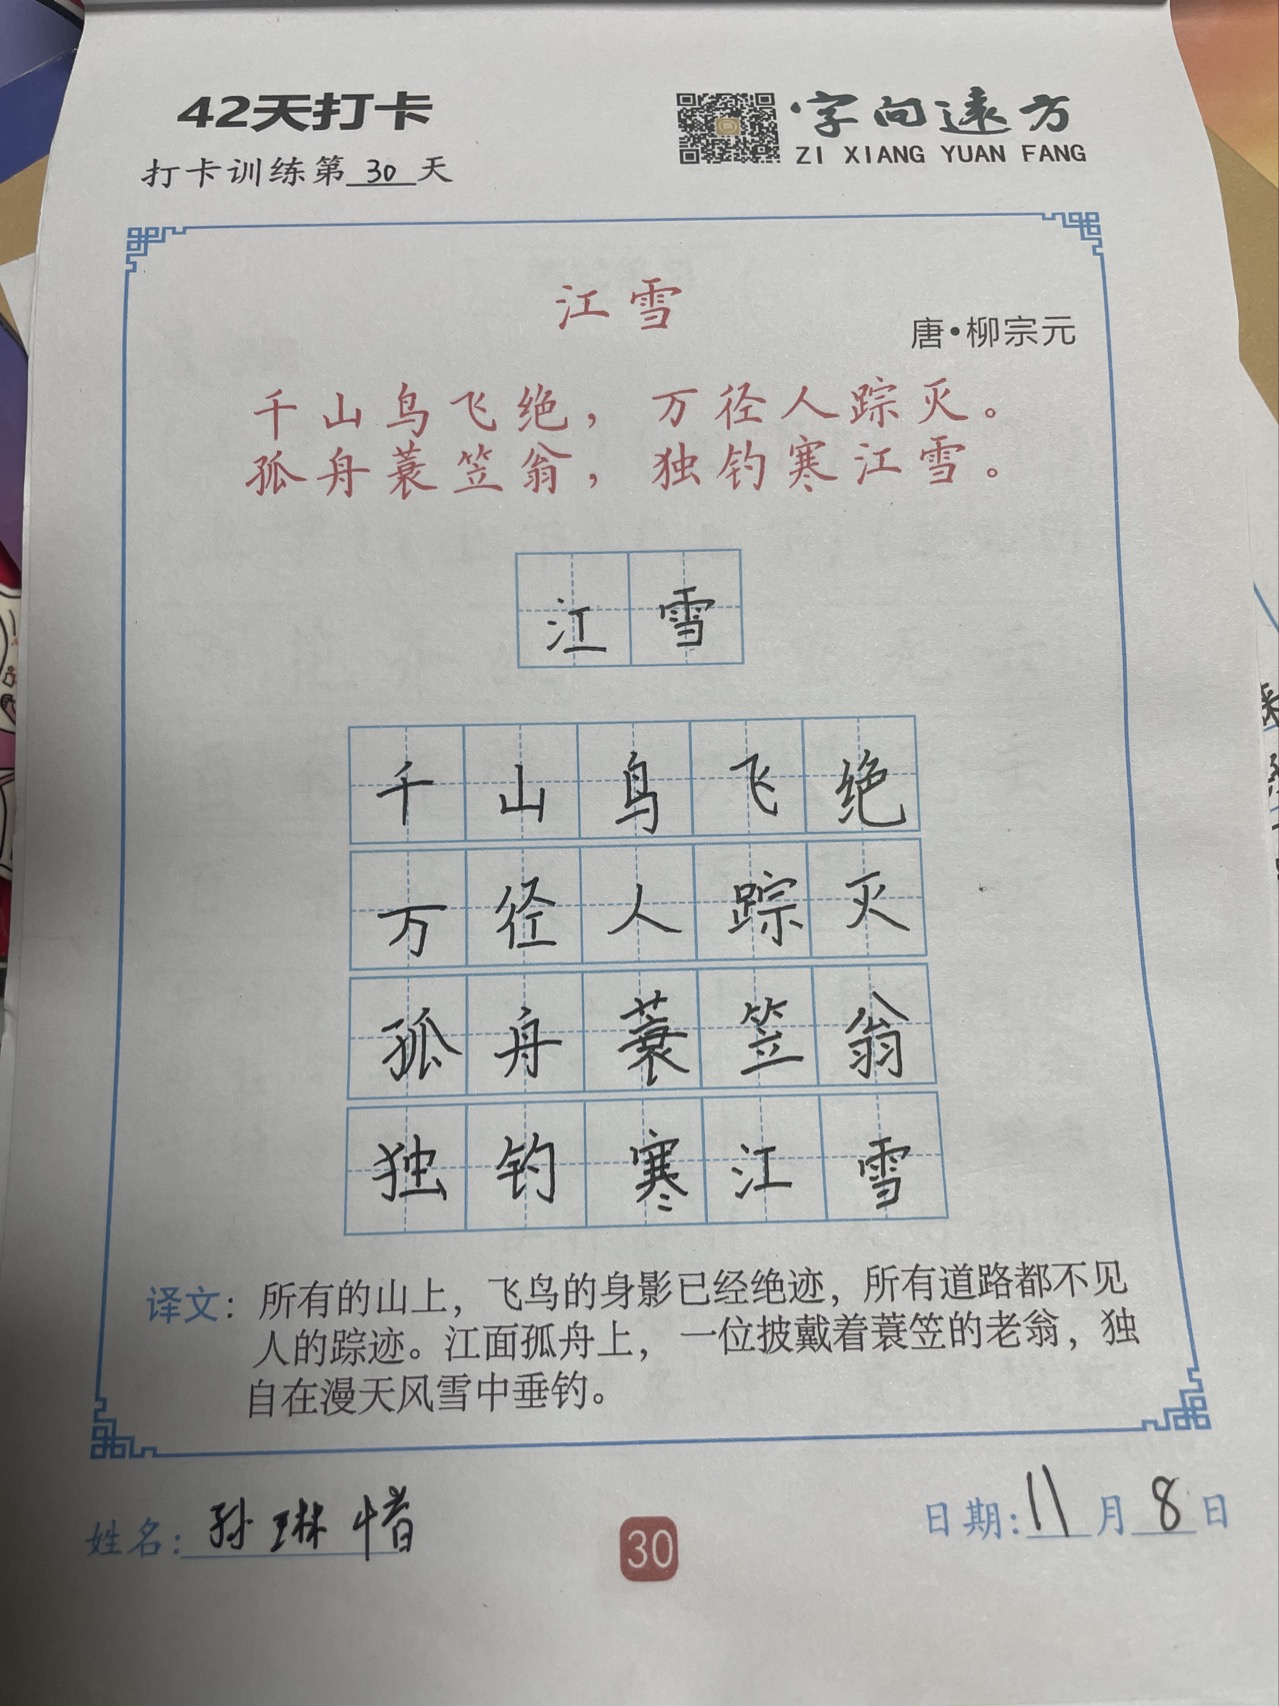 42天打卡
字向远方
ZI XIANG YUAN FANG
打卡训练第30天
江雪
唐·柳宗元
千山鸟飞绝，万径人踪灭。
孤舟蓑笠翁，独钓寒江雪。
江雪
千山鸟飞绝
万径人踪灭
孤舟蓑笠翁
独钓寒江雪
译文：所有的山上，飞鸟的身影已经绝迹，所有道路都不见
人的踪迹。江面孤舟上，一位披戴着蓑笠的老翁，独
自在漫天风雪中垂钓。
姓名：孙琳惜
日期：11月8日
30